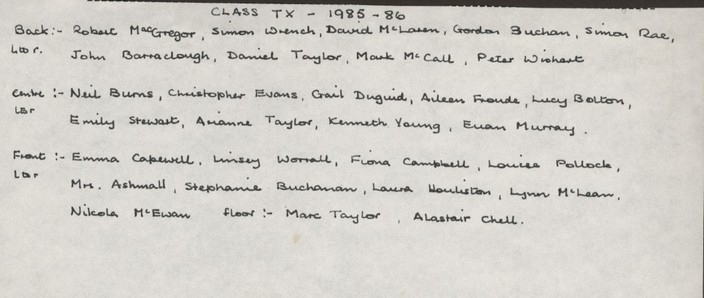 CLASS TX - 1985-86
Back:- Robert MacGregor, Simon Wrench, David McLaren, Gordon Buchan, Simon Rae,
L to r. John Barraclough, Daniel Taylor, Mark McCall, Peter Wishart
Centre :- Neil Burns, Christopher Evans, Gail Duguid, Aileen Froude, Lucy Bolton,
L to r Emily Stewart, Arianne Taylor, Kenneth Young, Euan Murray.
Front :- Emma Capewell, Linsey Worrall, Fiona Campbell, Louise Pollock,
L to r Mrs. Ashmall, Stephanie Buchanan, Laura Houliston, Lynn McLean,
Nikola McEwan floor :- Marc Taylor, Alastair Chell.